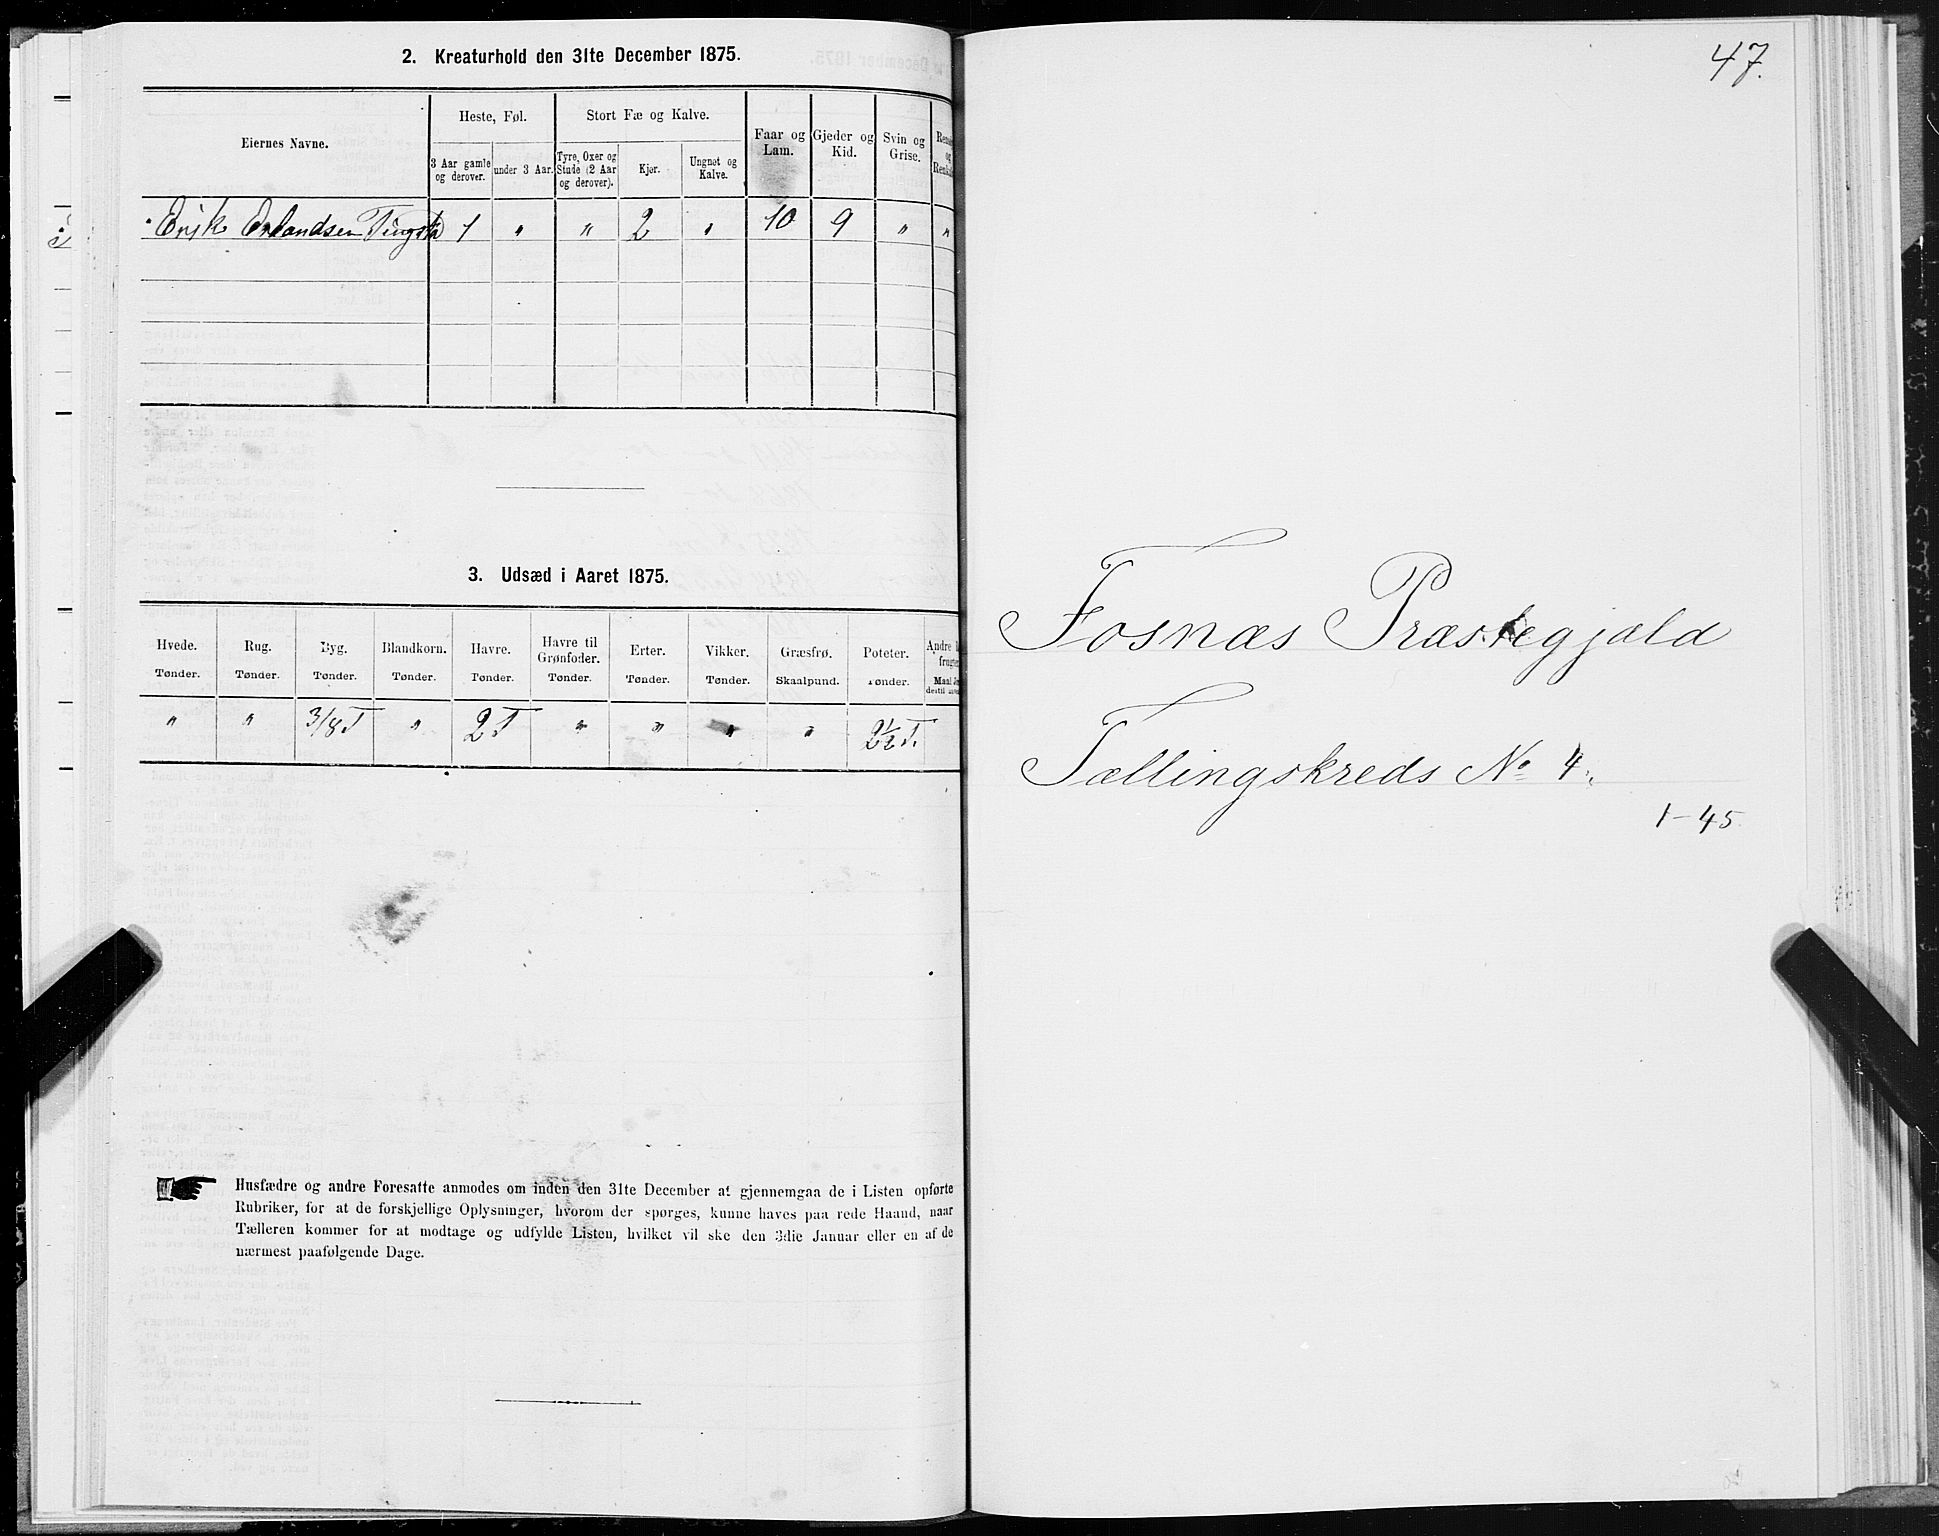 2. Kreaturhold den 31te December 1875.
Eiernes Navne.
Heste, Føl.
Stort Fæ og Kalve.
Faar og Lam.
Gjeder og Kid.
Svin og Grise.
3 Aar gamle og derover.
under 3 Aar.
Tyre, Oxer og Stude (2 Aar og derover).
Kjør.
Ungnøt og Kalve.
Erik Erlandsen 1 " " 2 " 10 9 " "
3. Udsæd i Aaret 1875.
Hvede. Rug. Byg. Blandkorn. Havre. Havre til Grønfoder. Erter. Vikker. Græsfrø. Poteter. Andre
Tønder. Tønder. Tønder. Tønder. Tønder. Tønder. Tønder. Tønder. Skaalpund. Tønder. Maal
" " 3/8 T " 2 T " " " " 2½ T.
Husfædre og andre Foresatte anmodes om inden den 31te December at gjennemgaa de i Listen opførte
Rubriker, for at de forskjellige Oplysninger, hvorom der spørges, kunne haves paa rede Haand, naar
Tælleren kommer for at modtage og udfylde Listen, hvilket vil ske den 3die Januar eller en af de
nærmest paafølgende Dage.
47.
Fosnæs Præstegjæld
Tællingskreds No 4.
1-45